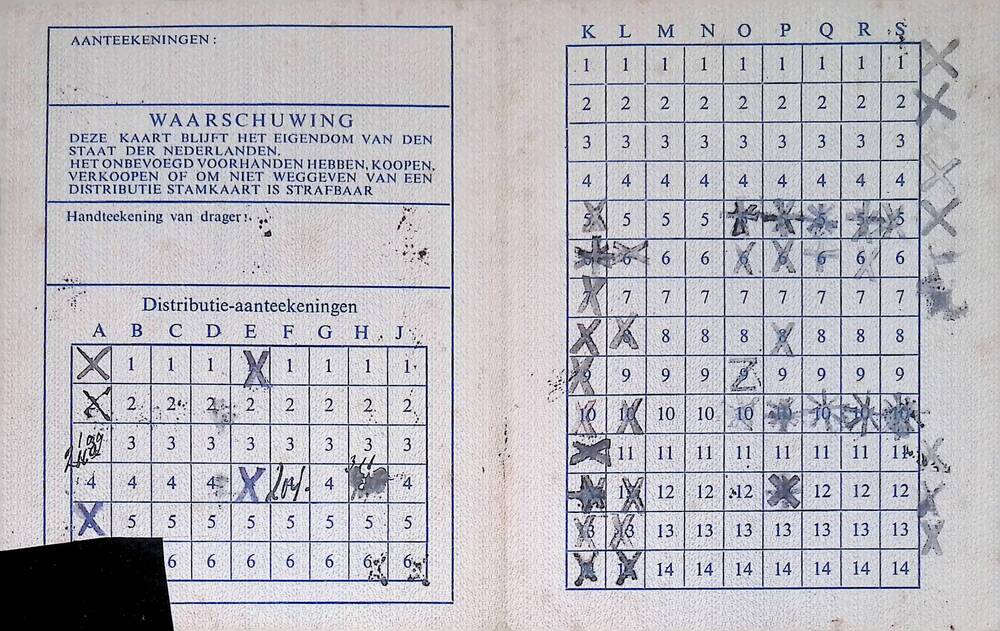 AANTEEKENINGEN:
WAARSCHUWING
DEZE KAART BLIJFT HET EIGENDOM VAN DEN
STAAT DER NEDERLANDEN.
HET ONBEVOEGD VOORHANDEN HEBBEN, KOOPEN,
VERKOOPEN OF OM NIET WEGGEVEN VAN EEN
DISTRIBUTIE STAMKAART IS STRAFBAAR
Handteekening van drager:
Distributie-aanteekeningen
A B C D E F G H J
1 1 1 1 1 1 1
2 2 2 2 2 2 2 2
3 3 3 3 3 3 3 3
4 4 4 4 4 4
5 5 5 5 5 5 5 5
6 6 6 6 6 6 6
K L M N O P Q R S
1 1 1 1 1 1 1 1 1
2 2 2 2 2 2 2 2 2
3 3 3 3 3 3 3 3 3
4 4 4 4 4 4 4 4 4
5 5 5 5 5 5 5
6 6 6 6 6 6 6 6
7 7 7 7 7 7 7 7 7
8 8 8 8 8 8 8 8
9 9 9 9 9 9 9 9 9
10 10 10 10 10 10 10 10 10
11 11 11 11 11 11 11 11
12 12 12 12 12 12
13 13 13 13 13 13 13 13 13
14 14 14 14 14 14 14